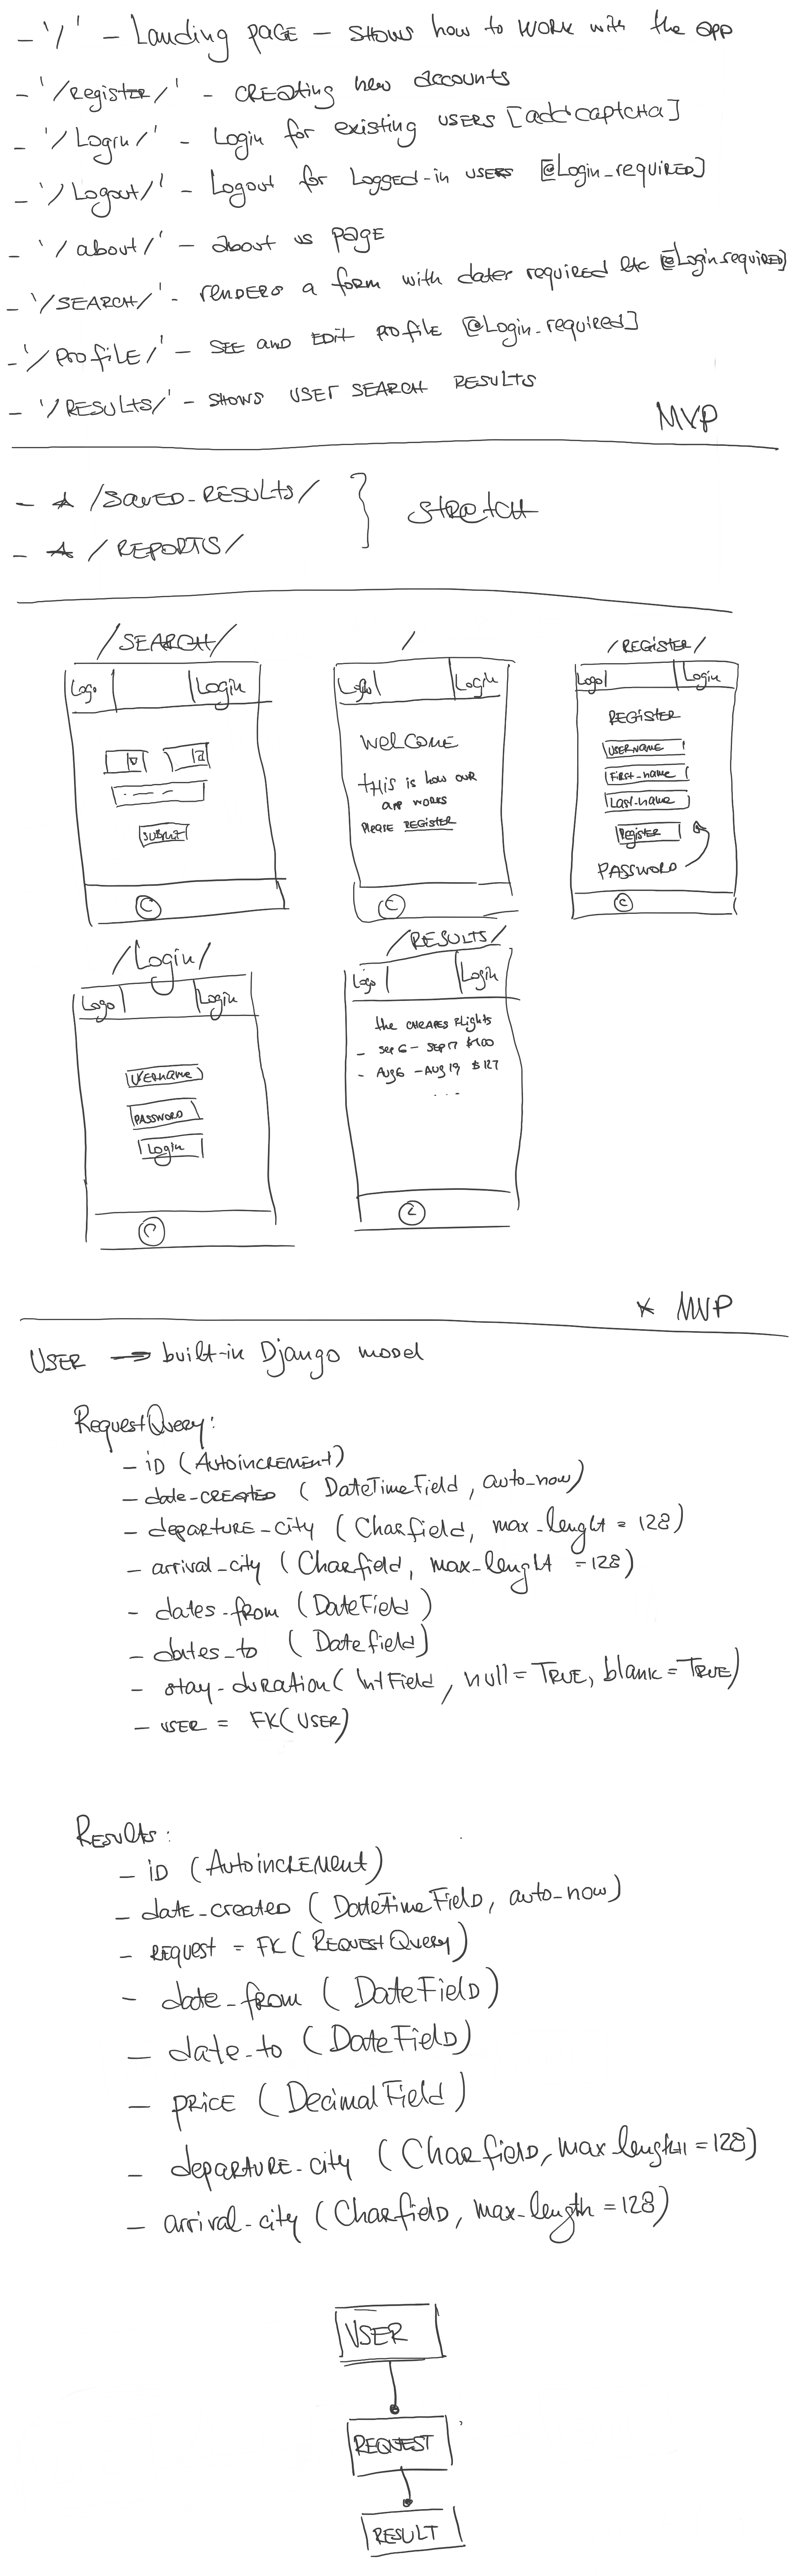 - '/' - Landing page - shows how to work with the app
- '/register/' - creating new accounts
- '/Login/' - Login for existing users [add captcha]
- '/Logout/' - Logout for Logged-in users [@Login_required]
- '/about/' - about us page
- '/SEARCH/' - renders a form with dates required etc [@Login_required]
- '/profile/' - see and edit profile [@Login_required]
- '/RESULTS/' - shows user search results
MVP
- * /saved-results/
- * /REPORTS/
} stretch
/SEARCH/
Logo Login
SUBMIT
©
/
Logo Login
Welcome
this is how our
app works
Please REGISTER
©
/REGISTER/
Logo Login
REGISTER
USERNAME
First-name
Last-name
Register
PASSWORD
©
/Login/
Logo Login
Username
PASSWORD
Login
©
/RESULTS/
Logo Login
the cheapes flights
- Sep 6 - Sep 17 $100
- Aug 6 - Aug 19 $127
...
* MVP
USER → built-in Django model
RequestQuery:
- iD (Autoincrement)
- date-created (DateTimeField, auto_now)
- departure-city (Charfield, max_lenght = 128)
- arrival-city (Charfield, max-lenght = 128)
- dates-from (DateField)
- dates-to (Datefield)
- stay-duration (IntField, null = TRUE, blank = TRUE)
- USER = FK(USER)
Results:
- iD (Autoincrement)
- date_created (DateTimeField, auto_now)
- request = FK(RequestQuery)
- date_from (DateField)
- date_to (DateField)
- price (DecimalField)
- departure-city (Charfield, max length = 128)
- arrival-city (Charfield, max-length = 128)
USER
REQUEST
RESULT